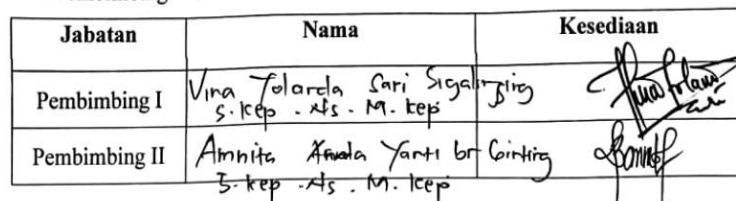 Jabatan Nama Kesediaan
Pembimbing I Vina Yolanda Sari Sigalingging
S.kep . Ns . M. kep
Pembimbing II Amnita Yanti br Ginting
S.kep . Ns . M. kep